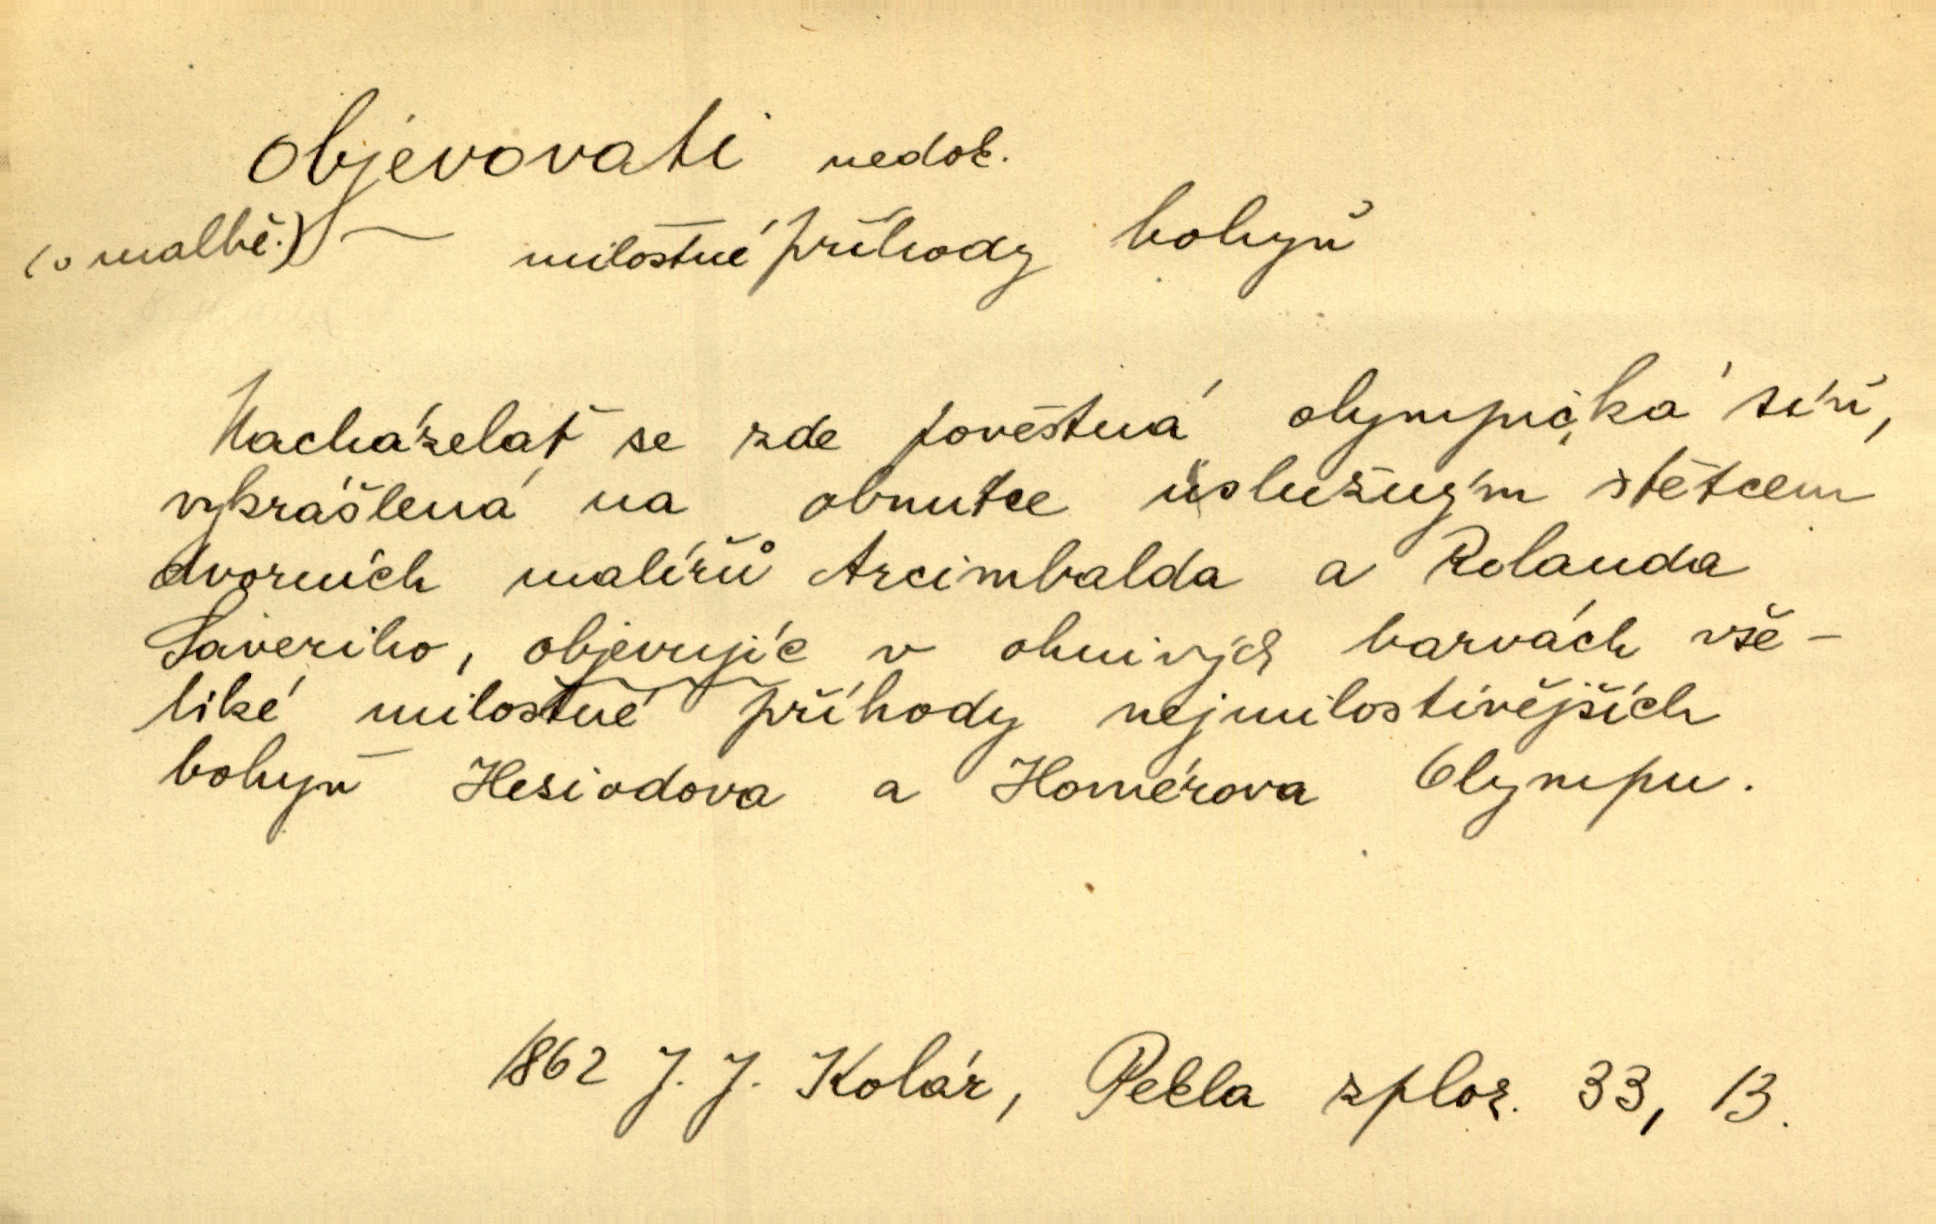 objevovati nedok.
(o malbě.) milostné příhody bohyň
Nacházelať se zde pověstná olympická síň,
vykrášlená na obmítce úslužným štětcem
dvorních malířů Arcimbalda a Rolanda
Saveriho, objevujíc v ohnivých barvách vše-
liké milostné příhody nejmilostivějších
bohyň Hesiodova a Homérova Olympu.
1862 J. J. Kolár, Pekla zploz. 33, 13.